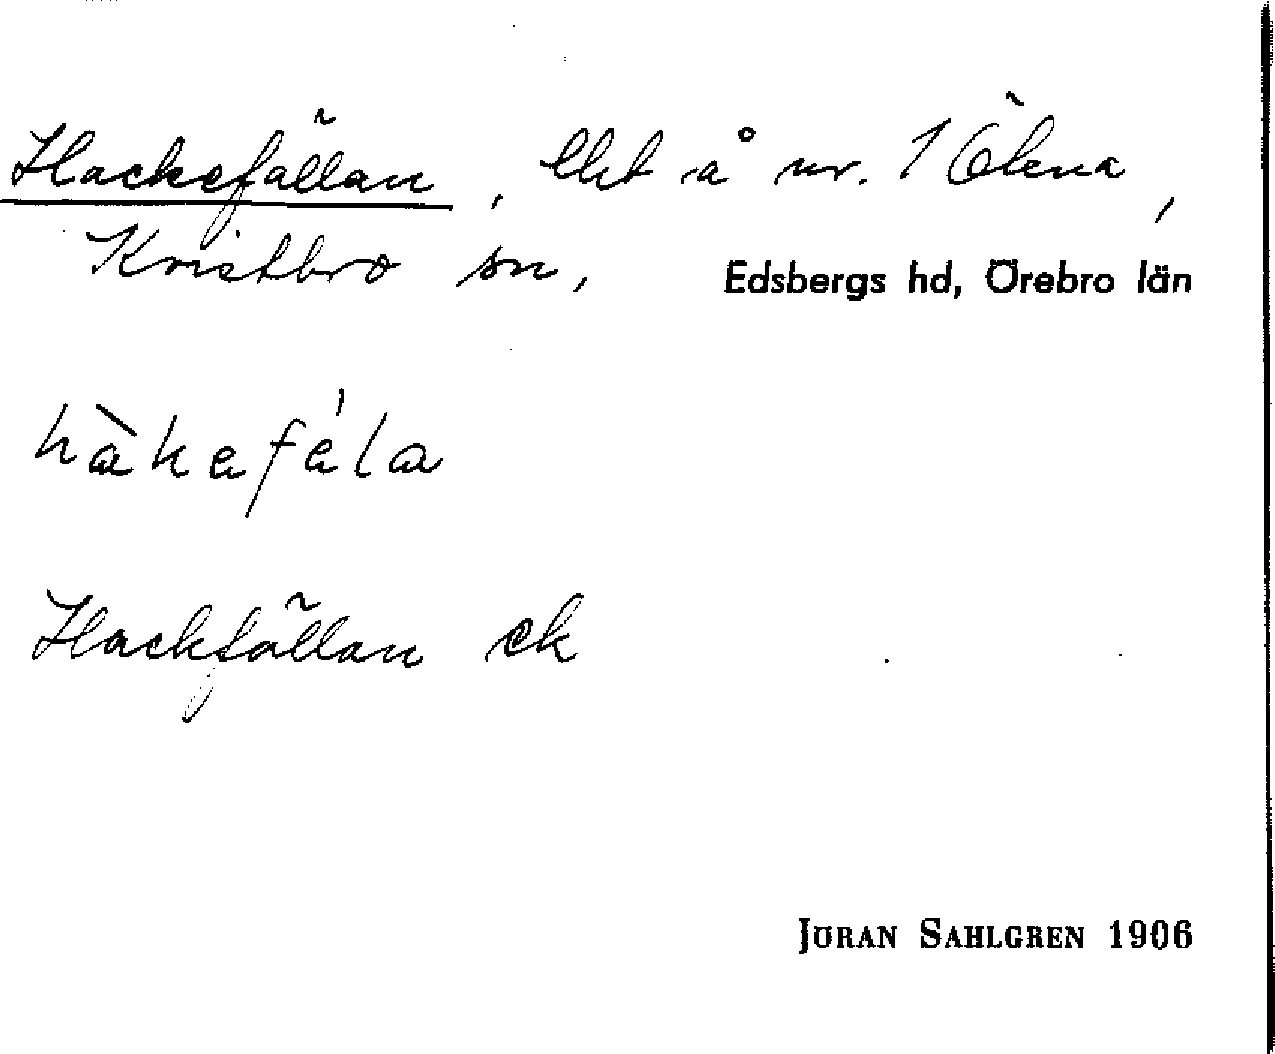 Hackefällan, lht å nr. 1 Ölena,
Kvistbro sn, Edsbergs hd, Örebro län
hàkefäla
Hackfällan ek
JÖRAN SAHLGREN 1906